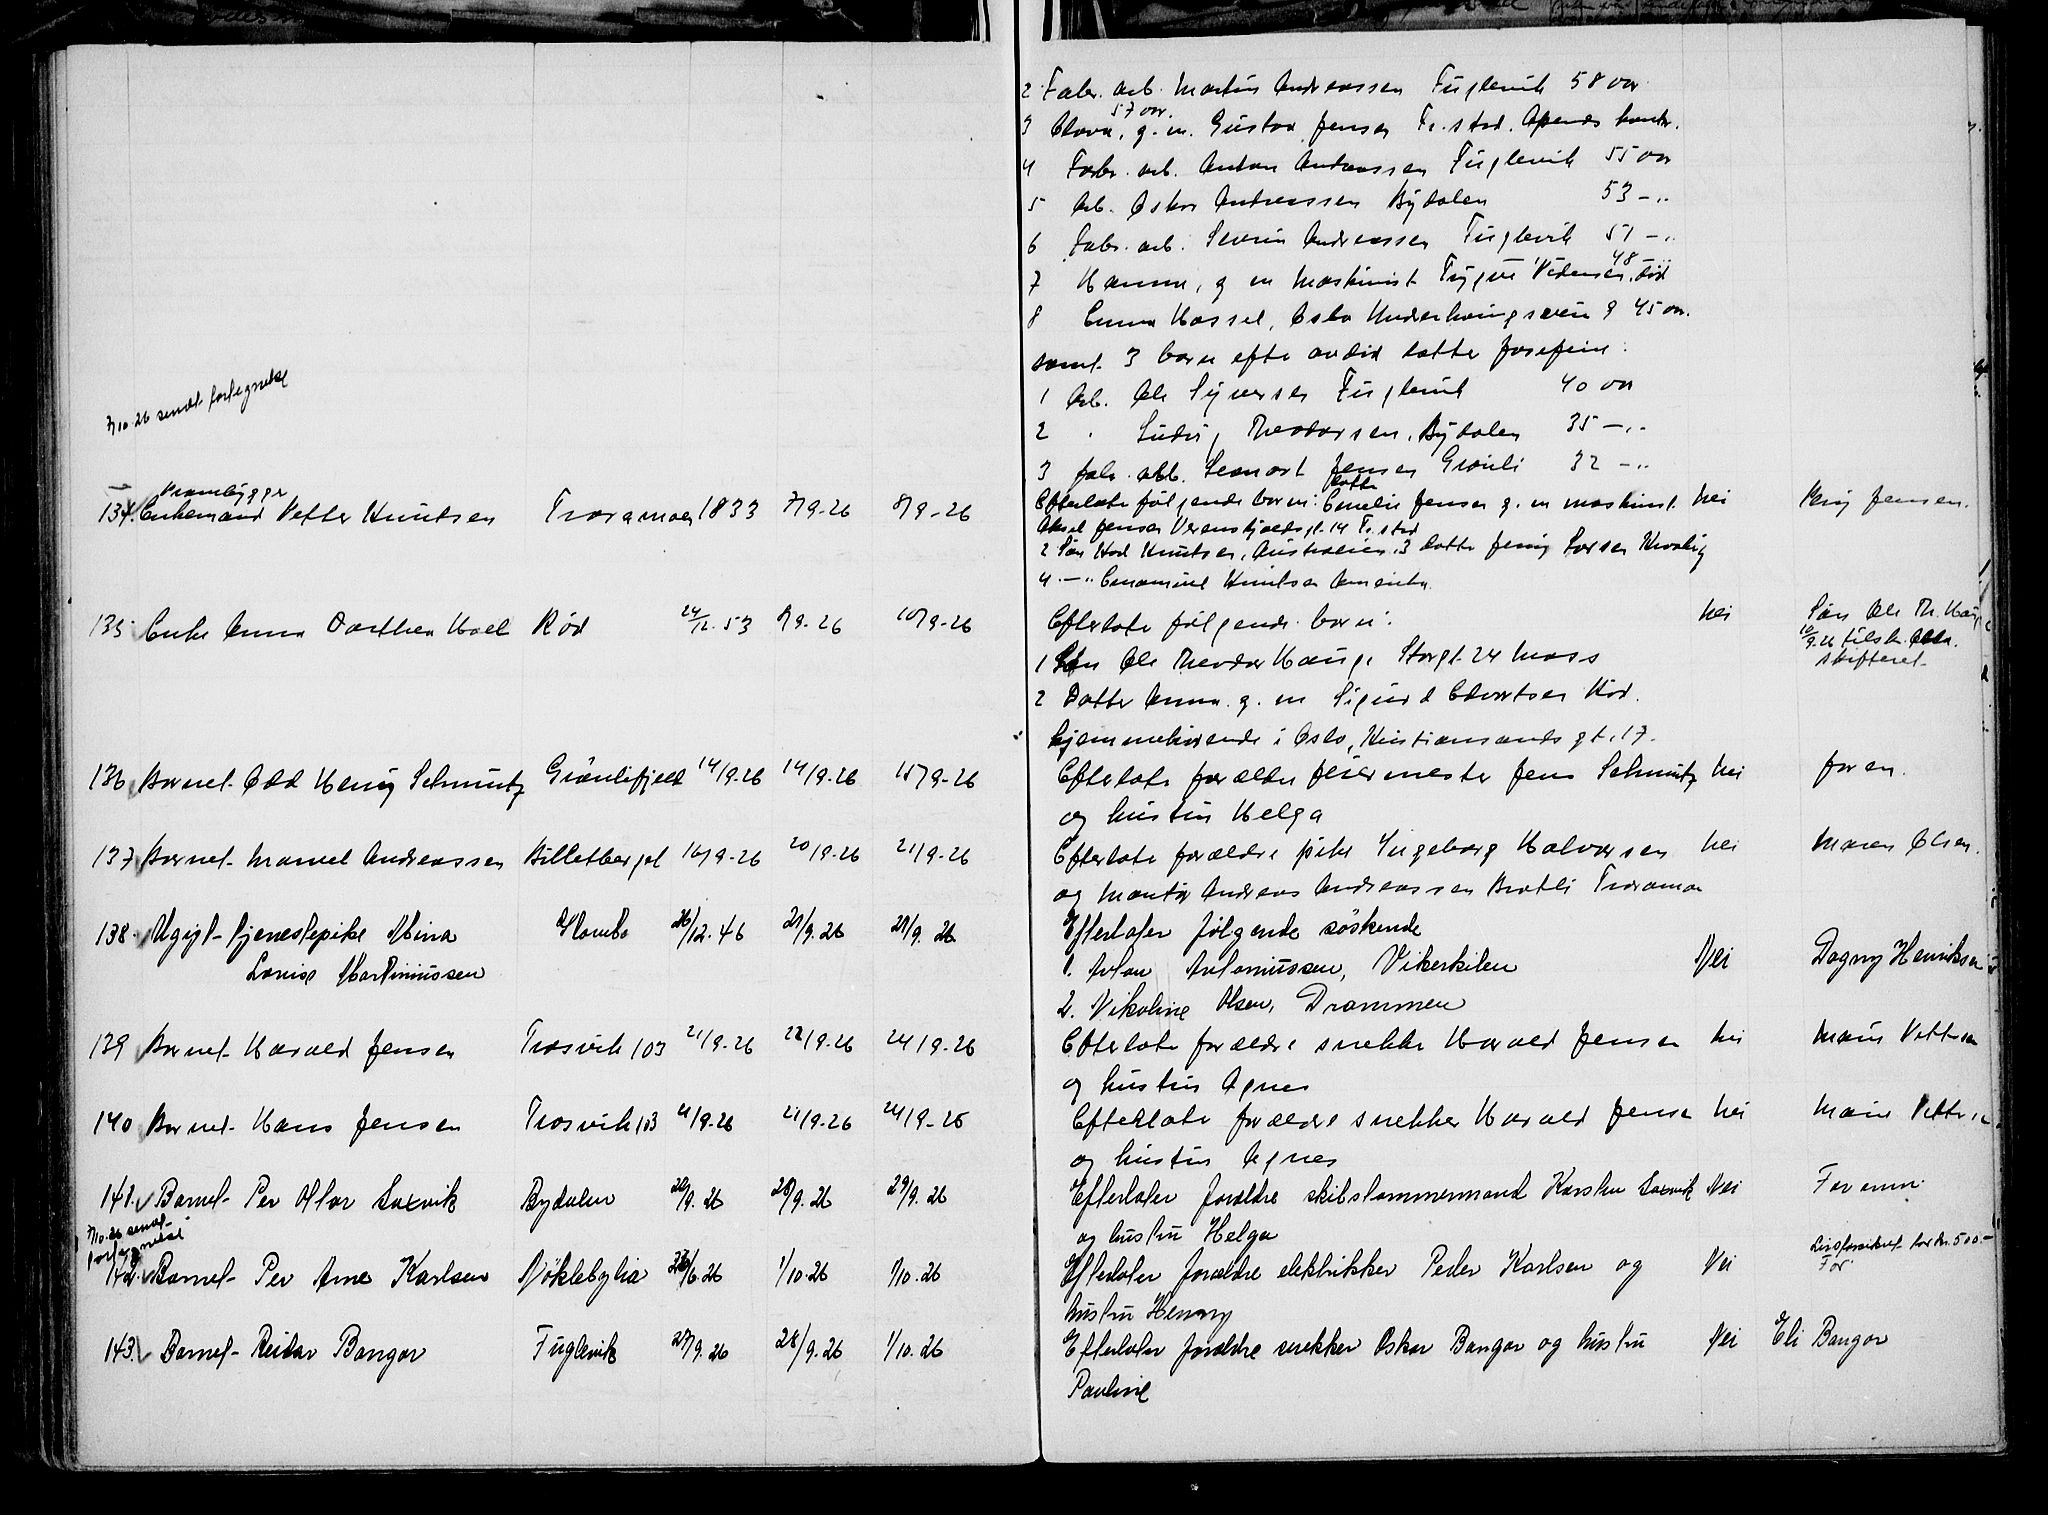 2 Fabr. arb. Martin Andreassen Fuglevik 58 aar
57 aar.
3 Clara, g. m. Gustav Jensen Fr. stad.
4 Fabr. arb. Anton Andreassen Fuglevik 55 aar
5 Arb. Oskar Andreassen Bydalen 53 - "
6 Fabr. arb. Severin Andreassen Fuglevik 51 - "
48 - "
7 Hanna, g m maskinist Trygve død
8 Emma Hassel, Oslo 45 aar.
samt 3 barn efter avdød datter Josefine:
7/10-26 sendt fortegnelse
1 Arb. Ole Syversen Fuglevik 40 aar
2 " Ludvig Theodorsen, Bydalen 35 - "
3 fabr. arb. Lennart Jensen Grønli 32 - "
datter
134. Enkemand Petter Knutsen Traramoen 1833 7/9-26 8/9-26 Efterlater følgende barn: Emelie Jensen g. m maskinist nei Jensen.
Aksel Jensen 14 Fr. stad
2 Søn Knutsen, Australien. 3 datter Jenny Larsen Kraakery
4 - " Emanuel Knutsen Amerika
135 Enke Anna Dorthea Rød 24/12. 53 8/9-26 10/9-26 Efterlate følgende barn: nei Søn Ole Th. Haug
10/9-26 tilsk.
skifteret
1 Søn Ole Theodor Hauge Storgt. 24 Moss
2 Datter Anna g. m Sigurd Edvartsen Rød.
hjemmehørende i Oslo, Kristiansands gt. 17.
136 Barnet Odd Henry Schmutz Grønlifjeld 14/9-26 14/9-26 15/9-26 Efterlate forældre feiermester Jens Schmutz nei faren.
og hustru Helga
137 Barnet Marvel Andreassen Billetberget 16/9-26 20/9-26 21/9-26 Efterlate forældre pike Ingeborg Halvorsen nei Maren Olsen.
og Montør Andreas Andreassen Bratli Traramoen
138. Ugift tjenestepike Mina Hambo 26/12. 46 21/9. 26 21/9. 26 Efterlater følgende søskende
Louise Martinussen 1. Anton Antoniussen, Vikerkilen Nei Dagny Henriksen
2. Nikoline Olsen, Drammen
139 Barnet Harald Jensen Trosvik 103 21/9-26 22/9-26 24/9-26 Efterlate forældre snekker Harald Jensen nei
og hustru Agnes
140 Barnet Hans Jensen Trosvik 103 21/9-26 21/9-26 24/9-26 Efterlate forældre snekker Harald Jensen nei
og hustru Agnes
141. Barnet Per Olav Saxvik Bydalen 20/9. 26 28/9. 26 29/9. 26 Efterlater forældre skibstømmermand Karsten Saxvik Nei Faren
og hustru Helga
7/10-26 sendt
fortegnelse
Livsforsikret for kr. 500.-
142. Barnet Per Arne Karlsen Nøklebylia 23/6. 26 1/10. 26 1/10. 26 Efterlater forældre elektrikker Peder Karlsen og Nei Far
hustru Henny
143. Barnet Reidar Bangor Fuglevik 27/9. 26 28/9. 26 1/10. 26 Efterlater forældre snekker Oskar Bangor og hustru Nei Eli Bangor
Pauline